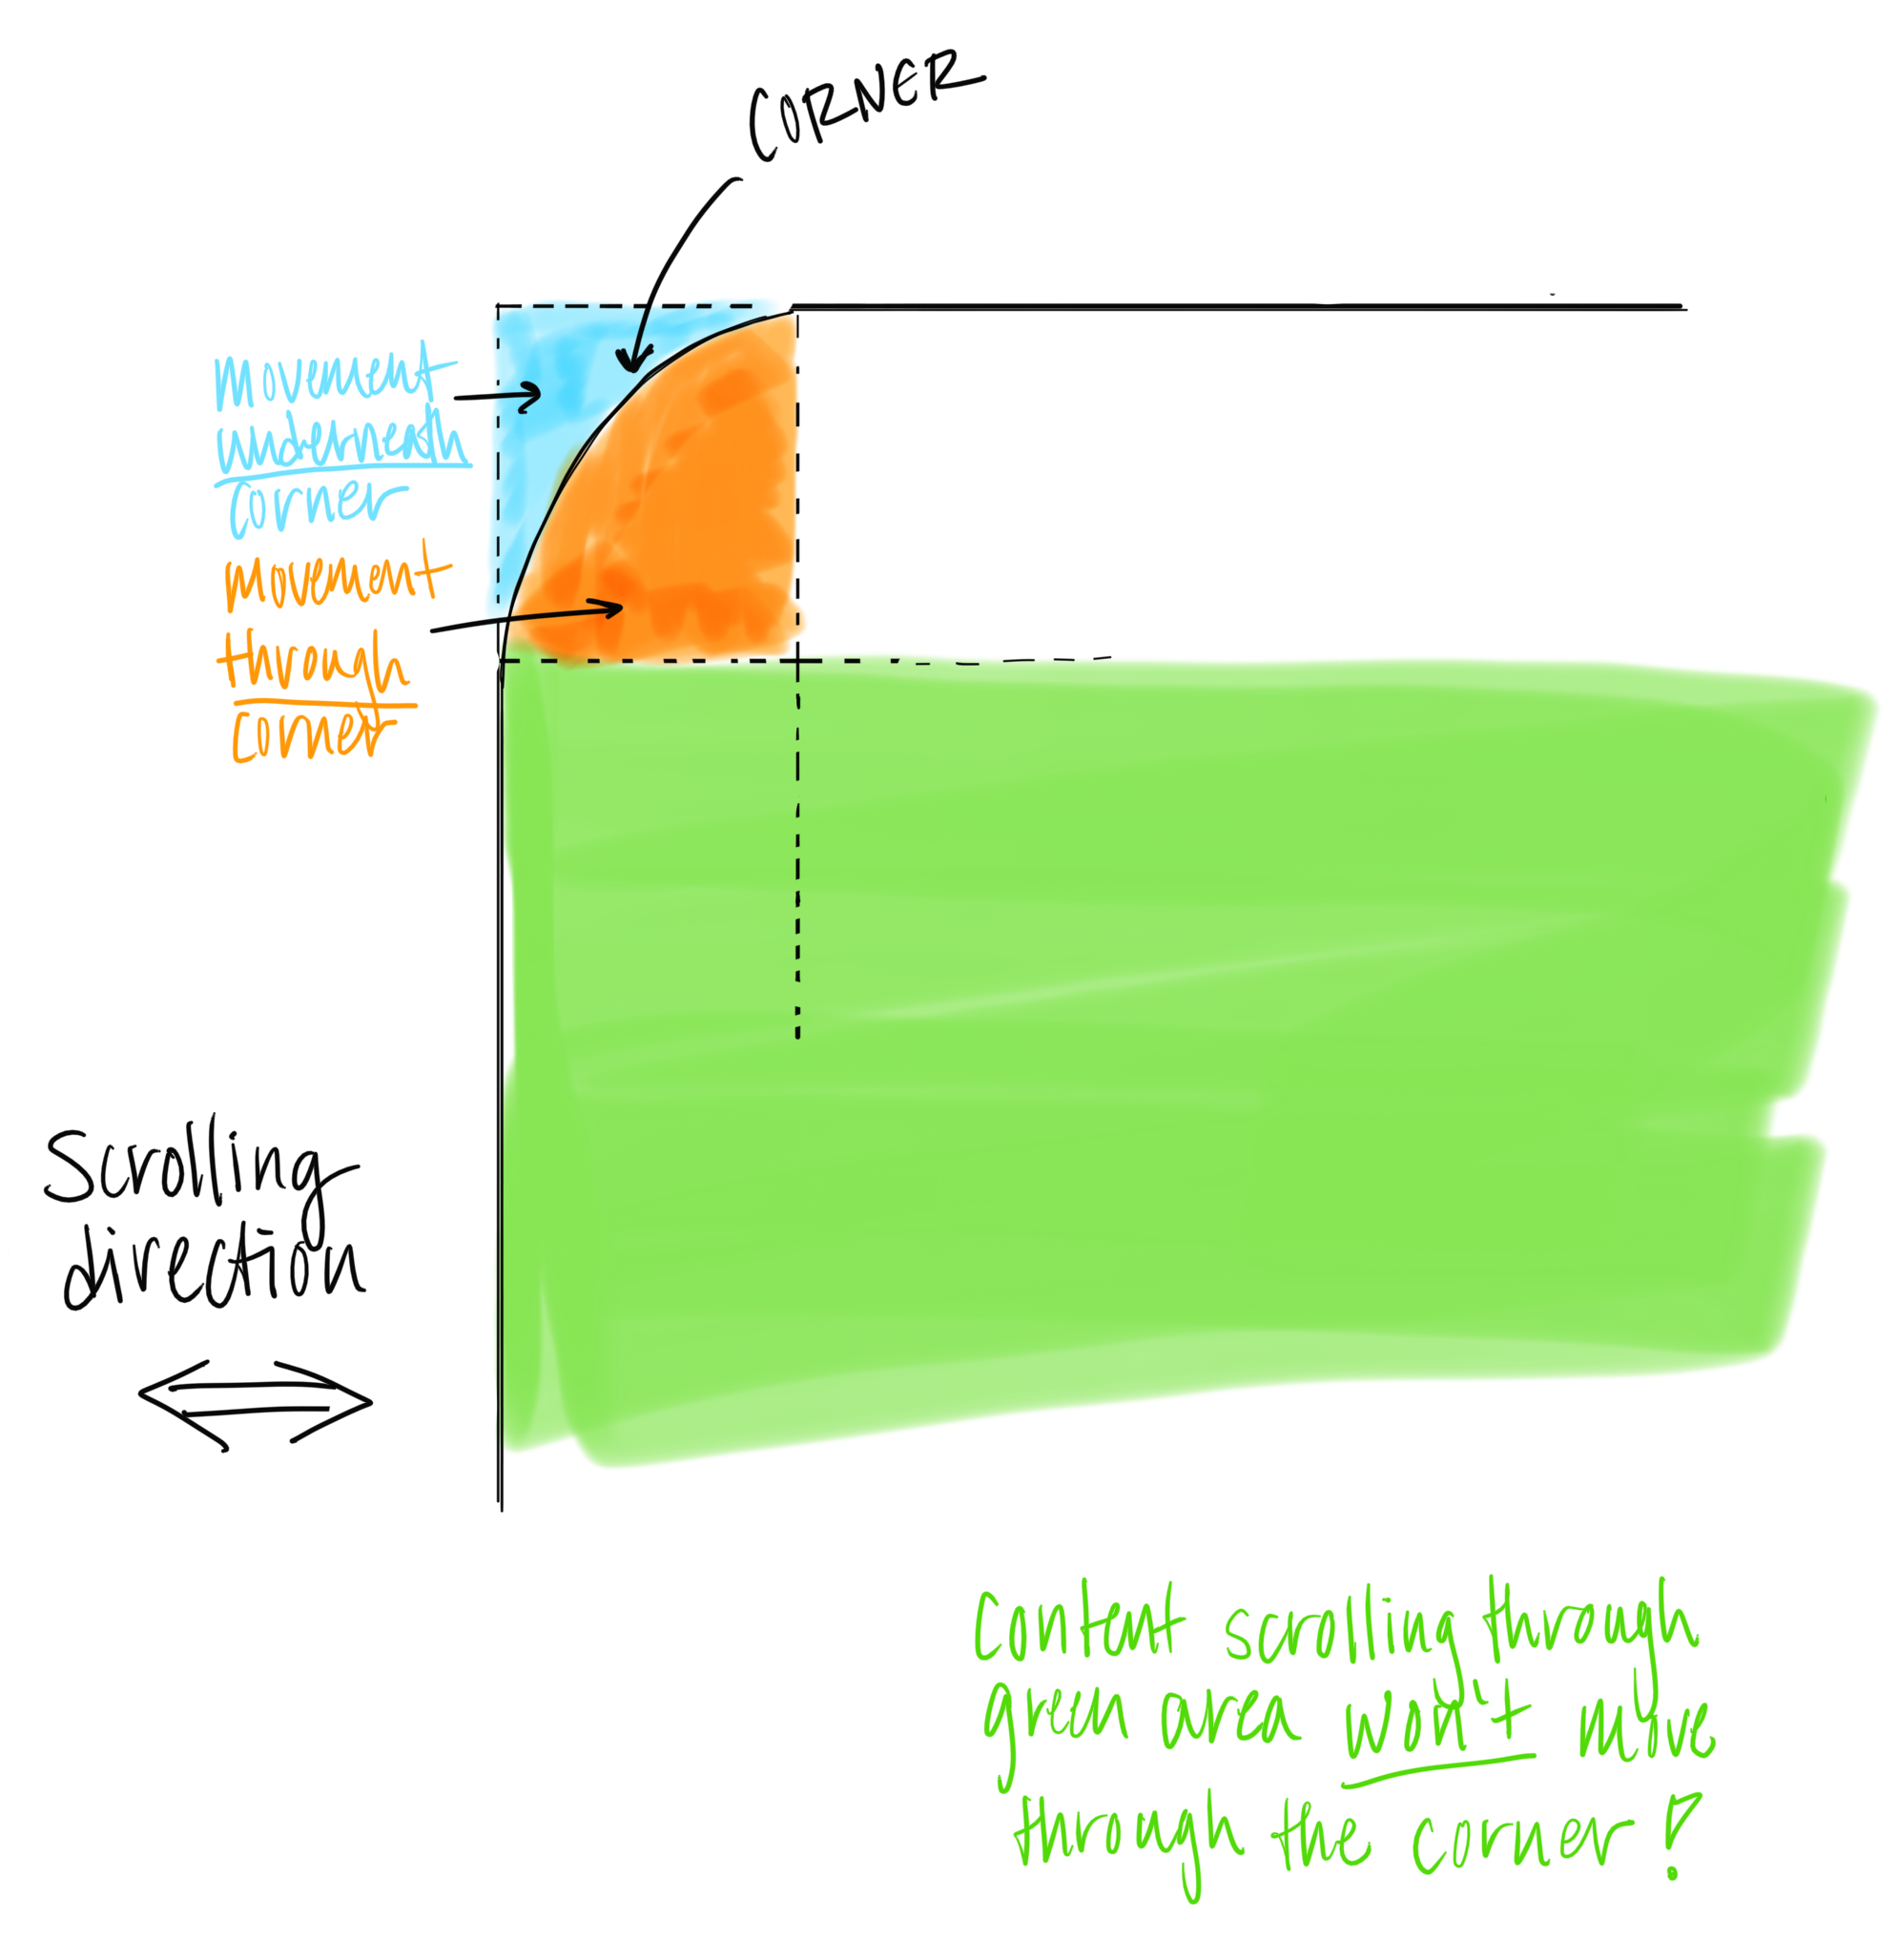 CORNER
movement
underneath
corner
movement
through
corner
Scrolling
direction
Content scrolling through
green area won't move
through the corner!